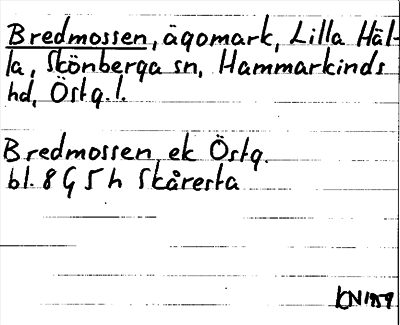 Bredmossen, ägomark, Lilla Häl-
la, Skönberga sn, Hammarkinds
hd, Östg.l.
Bredmossen ek Östg.
bl. 8 G 5 h Skåresta
KN 1959